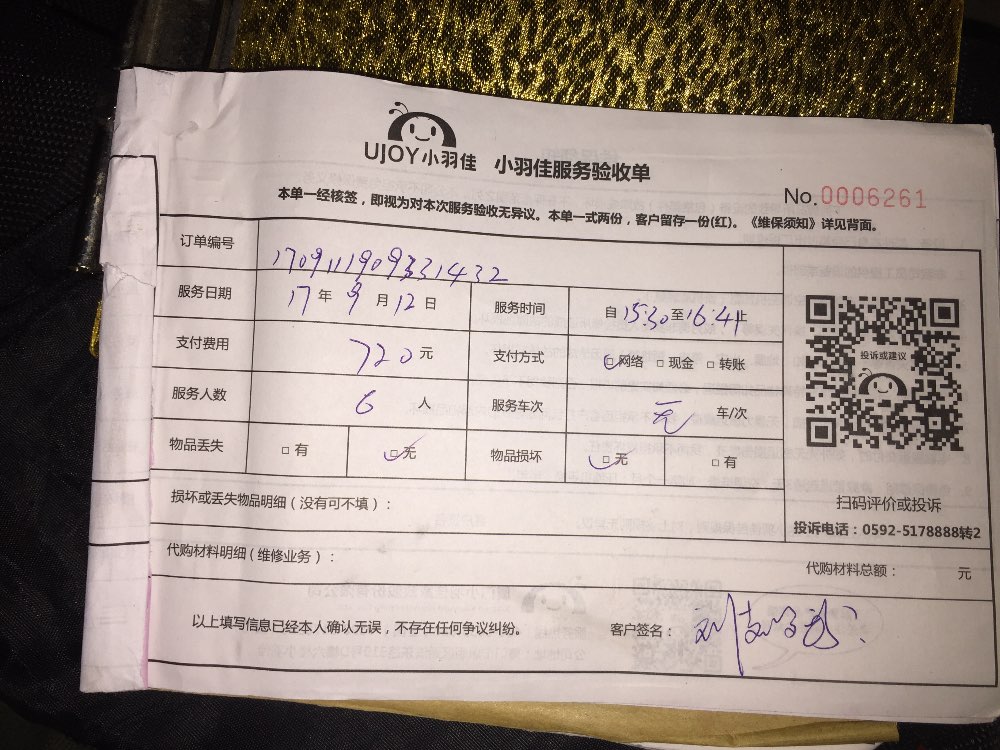 UJOY小羽佳 小羽佳服务验收单
No.0006261
本单一经核签，即视为对本次服务验收无异议。本单一式两份，客户留存一份(红)。《维保须知》详见背面。
订单编号 1709111909331432
服务日期 17年 9月 12日 服务时间 自15:30至16:41止
支付费用 720元 支付方式 □网络 □现金 □转账
服务人数 6人 服务车次 无 车/次
物品丢失 □有 □无 物品损坏 □无 □有
投诉或建议
扫码评价或投诉
投诉电话：0592-5178888转2
损坏或丢失物品明细(没有可不填)：
代购材料明细(维修业务)：
代购材料总额： 元
以上填写信息已经本人确认无误，不存在任何争议纠纷。 客户签名：